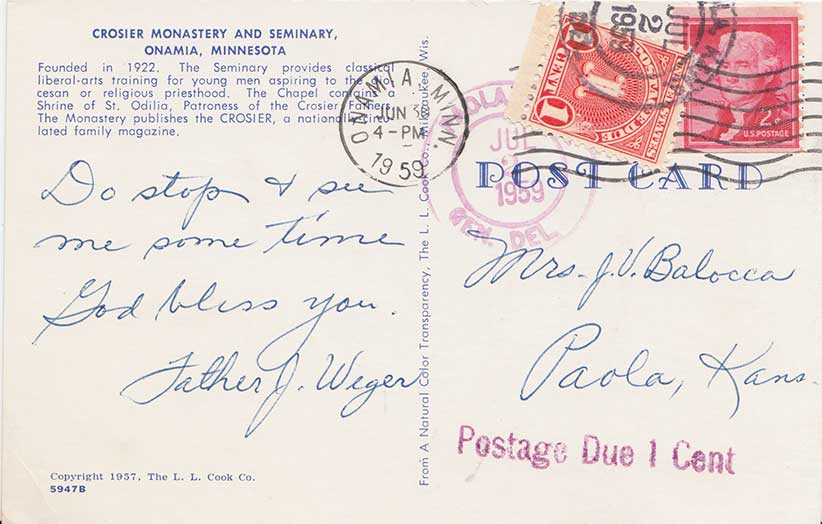 CROSIER MONASTERY AND SEMINARY,
ONAMIA, MINNESOTA
Founded in 1922. The Seminary provides classical
liberal-arts training for young men aspiring to the dio-
cesan or religious priesthood. The Chapel contains a
Shrine of St. Odilia, Patroness of the Crosier Fathers.
The Monastery publishes the CROSIER, a nationally circu-
lated family magazine.
ONAMIA, MINN.
JUN 30
4-PM
1959
Do stop & see
me some time
God bless you.
Father J. Weger
Copyright 1957, The L. L. Cook Co.
5947B
From A Natural Color Transparency, The L. L. Cook Co., Milwaukee, Wis.
JUL
1959
GEN. DEL.
1
CENT
1
POSTAGE DUE
UNITED STATES
JUL
2
1959
2¢
U.S. POSTAGE
POST CARD
Mrs. J. V. Balocca
Paola, Kans.
Postage Due 1 Cent